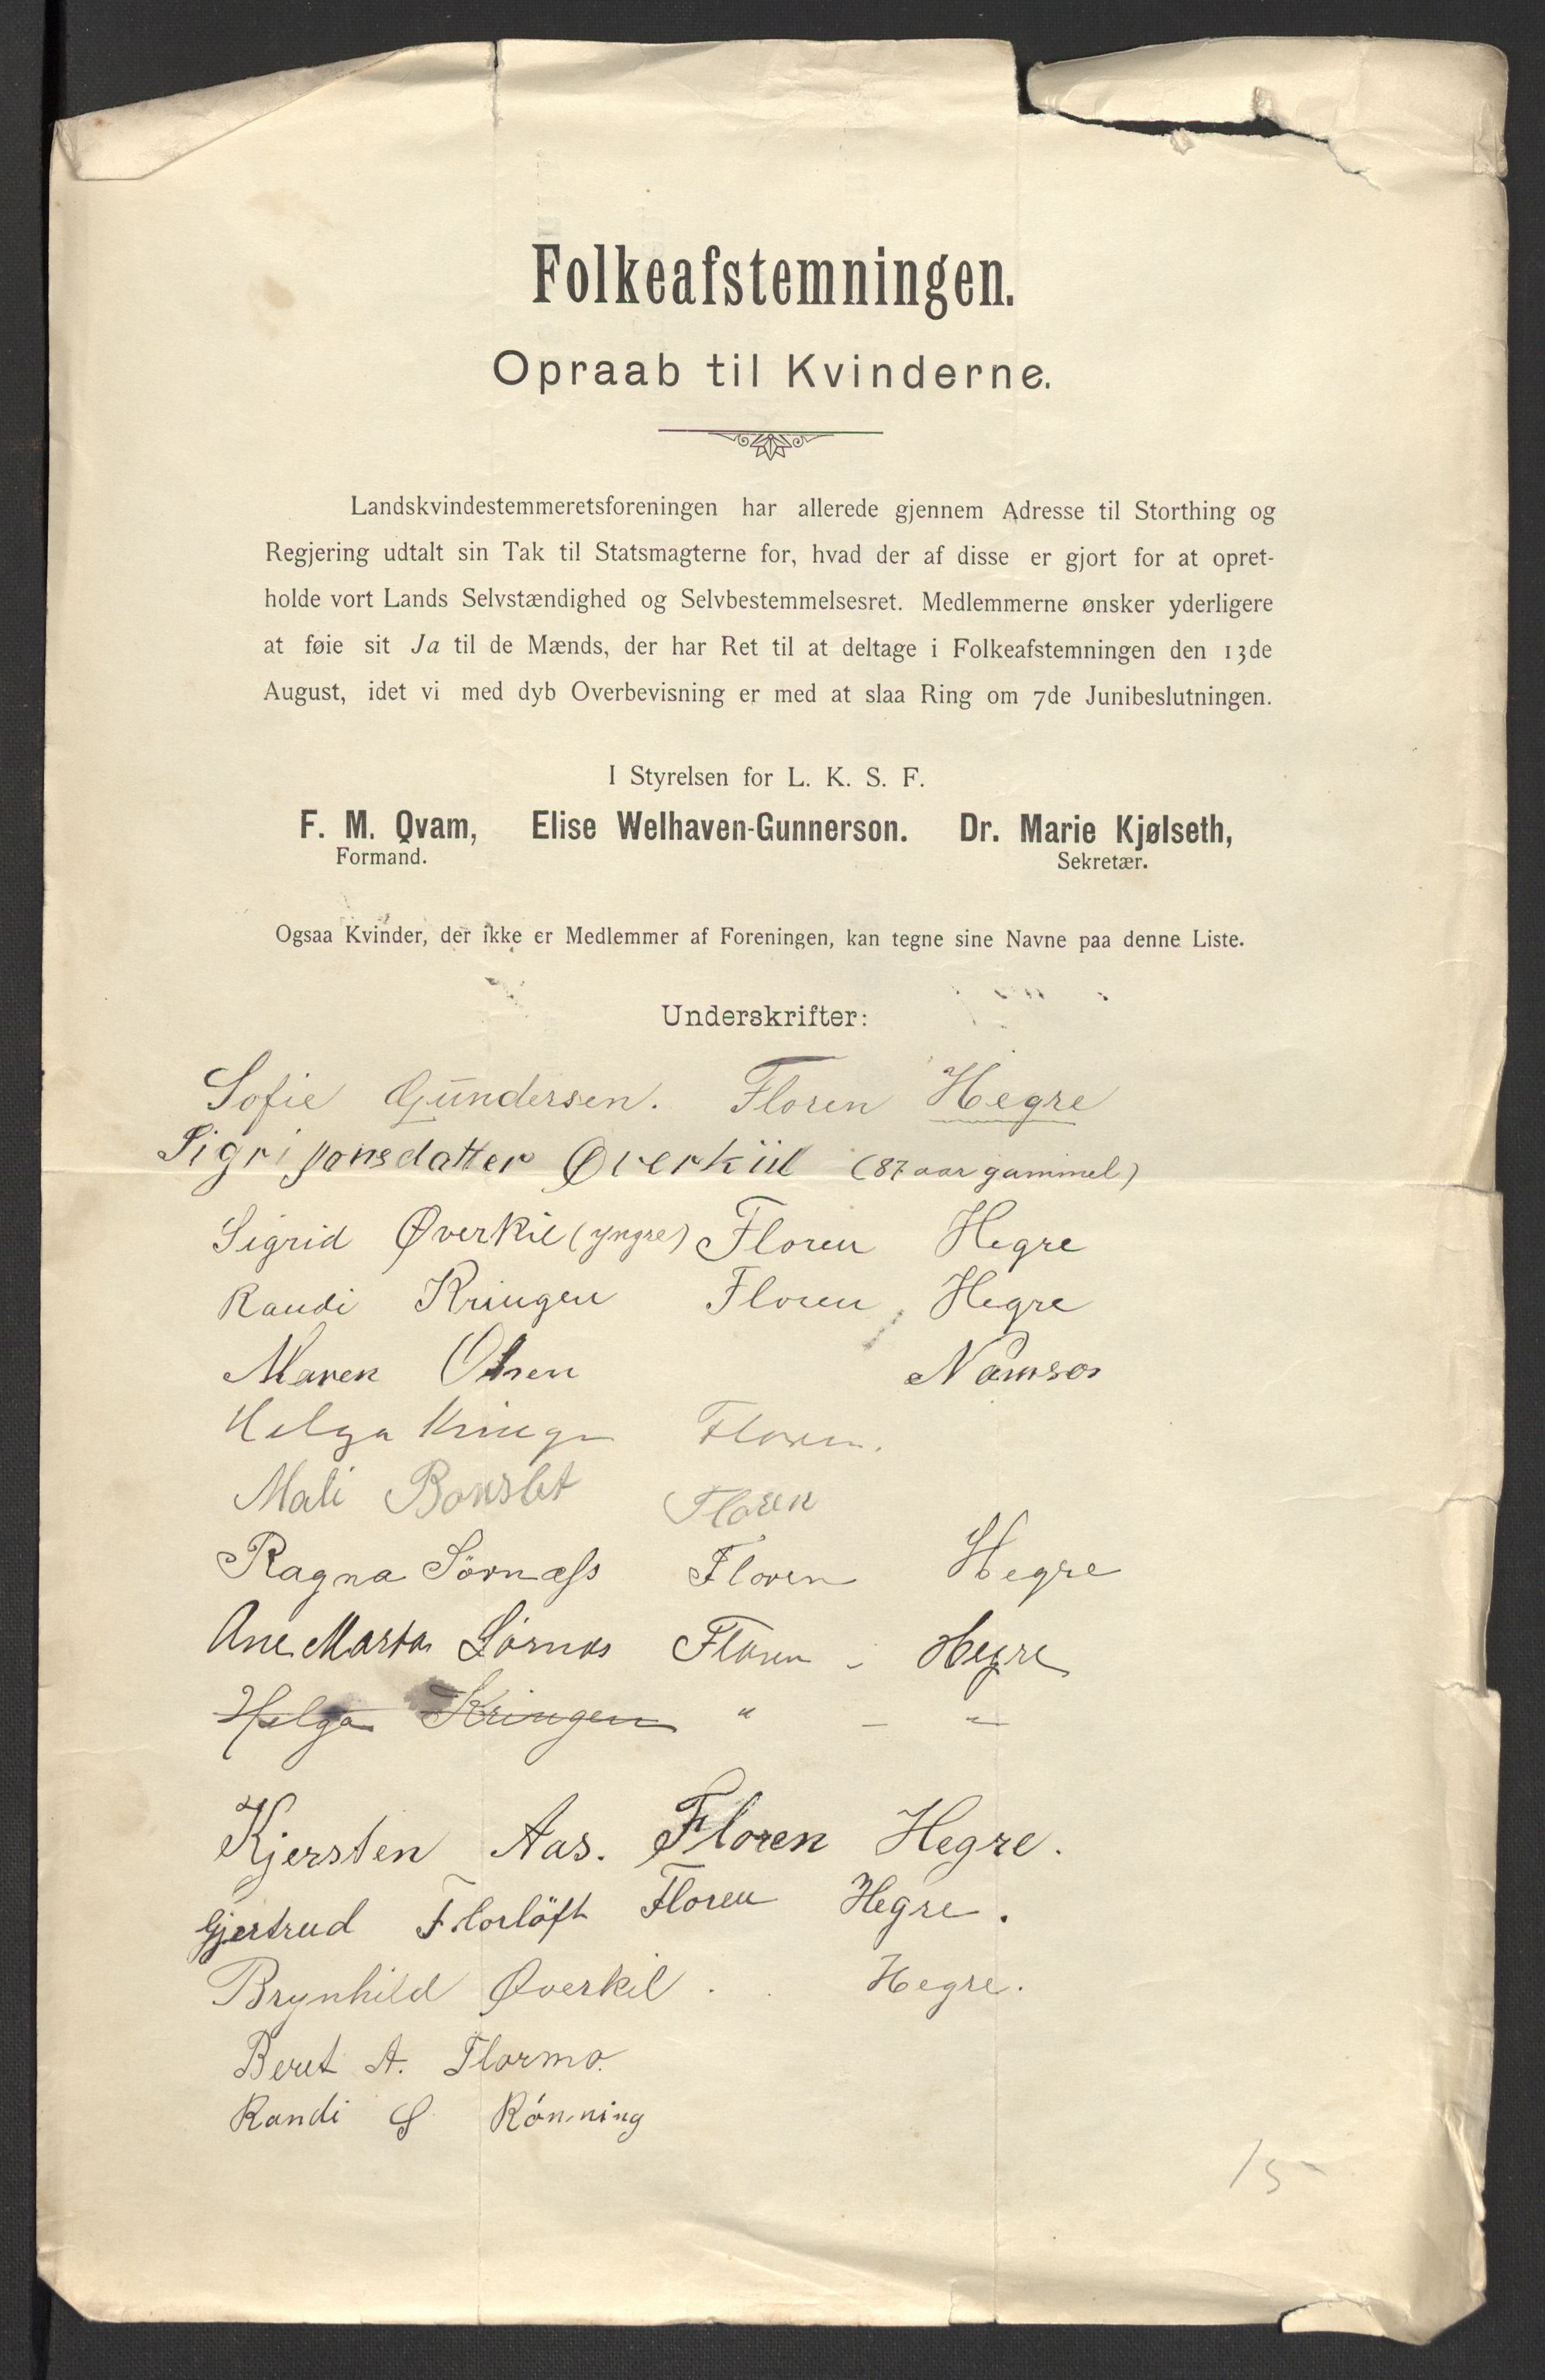 Folkeafstemningen.
Opraab til Kvinderne.
Landskvindestemmeretsforeningen har allerede gjennem Adresse til Storthing og
Regjering udtalt sin Tak til Statsmagterne for, hvad der af disse er gjort for at opret-
holde vort Lands Selvstændighed og Selvbestemmelsesret. Medlemmerne ønsker yderligere
at føie sit Ja til de Mænds, der har Ret til at deltage i Folkeafstemningen den 13de
August, idet vi med dyb Overbevisning er med at slaa Ring om 7de Junibeslutningen.
I Styrelsen for L. K. S. F.
F. M. Qvam, Elise Welhaven-Gunnerson. Dr. Marie Kjølseth,
Formand. Sekretær.
Ogsaa Kvinder, der ikke er Medlemmer af Foreningen, kan tegne sine Navne paa denne Liste.
Underskrifter:
Sofie Gundersen. Floren Hegre
Sigri Jonsdatter Øverkiil (87 aar gammel)
Sigrid Øverkil (yngre) Floren Hegre
Randi Kringen Floren, Hegre
Maren Olsen Namsos
Helga Kringen Floren.
Mali Floren
Ragna Sörnæss Floren Hegre
Ane Marta Sörnæs Floren - Hegre
Helga Kringen " — "
Kjersten Aas. Floren Hegre.
Gjertrud Florlöft Floren Hegre.
Brynhild Øverkil . . Hegre.
Beret A. Flormo.
Randi Rönning
15